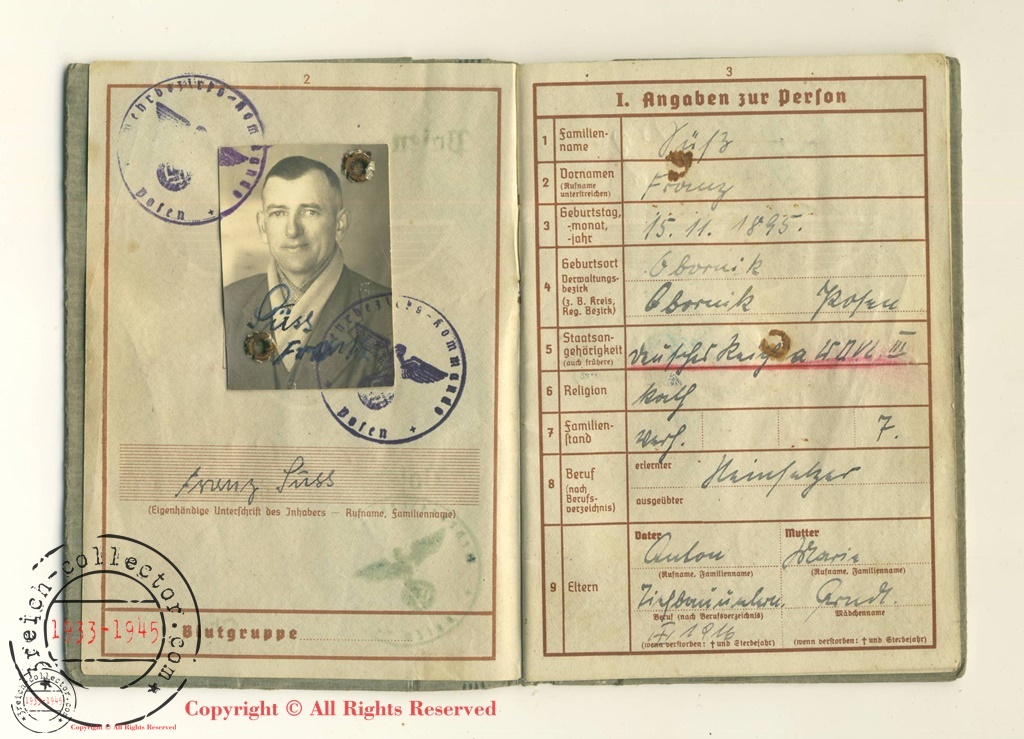 2
Wehrbezirks-Kommando
Posen
Süss
Franz
Wehrbezirks-Kommando
Posen
Franz Süss
(Eigenhändige Unterschrift des Inhabers — Rufname, Familienname)
Blutgruppe
3
I. Angaben zur Person
1 Familien-
name
Süß
2 Vornamen
(Rufname
unterstreichen)
Franz
3 Geburtstag,
-monat,
-jahr
15. 11. 1895.
4 Geburtsort
Verwaltungs-
bezirk
(z. B. Kreis,
Reg. Bezirk)
Obornik
Obornik Posen
5 Staatsan-
gehörigkeit
(auch frühere)
Deutsches Reich a III
6 Religion
kath
7 Familien-
stand
verh. 7.
8 Beruf
(nach
Berufs-
verzeichnis)
erlernter
Steinsetzer
ausgeübter
9 Eltern
Vater
Anton
(Rufname, Familienname)
Tiefbauuntern.
Beruf (nach Berufsverzeichnis)
1916
(wenn verstorben: † und Sterbejahr)
Mutter
Marie
(Rufname, Familienname)
Arndt
Mädchenname
(wenn verstorben: † und Sterbejahr)
3reich-collector.com
1933-1945
3reich-collector.com
1933-1945
Copyright © All Rights Reserved
Copyright © All Rights Reserved